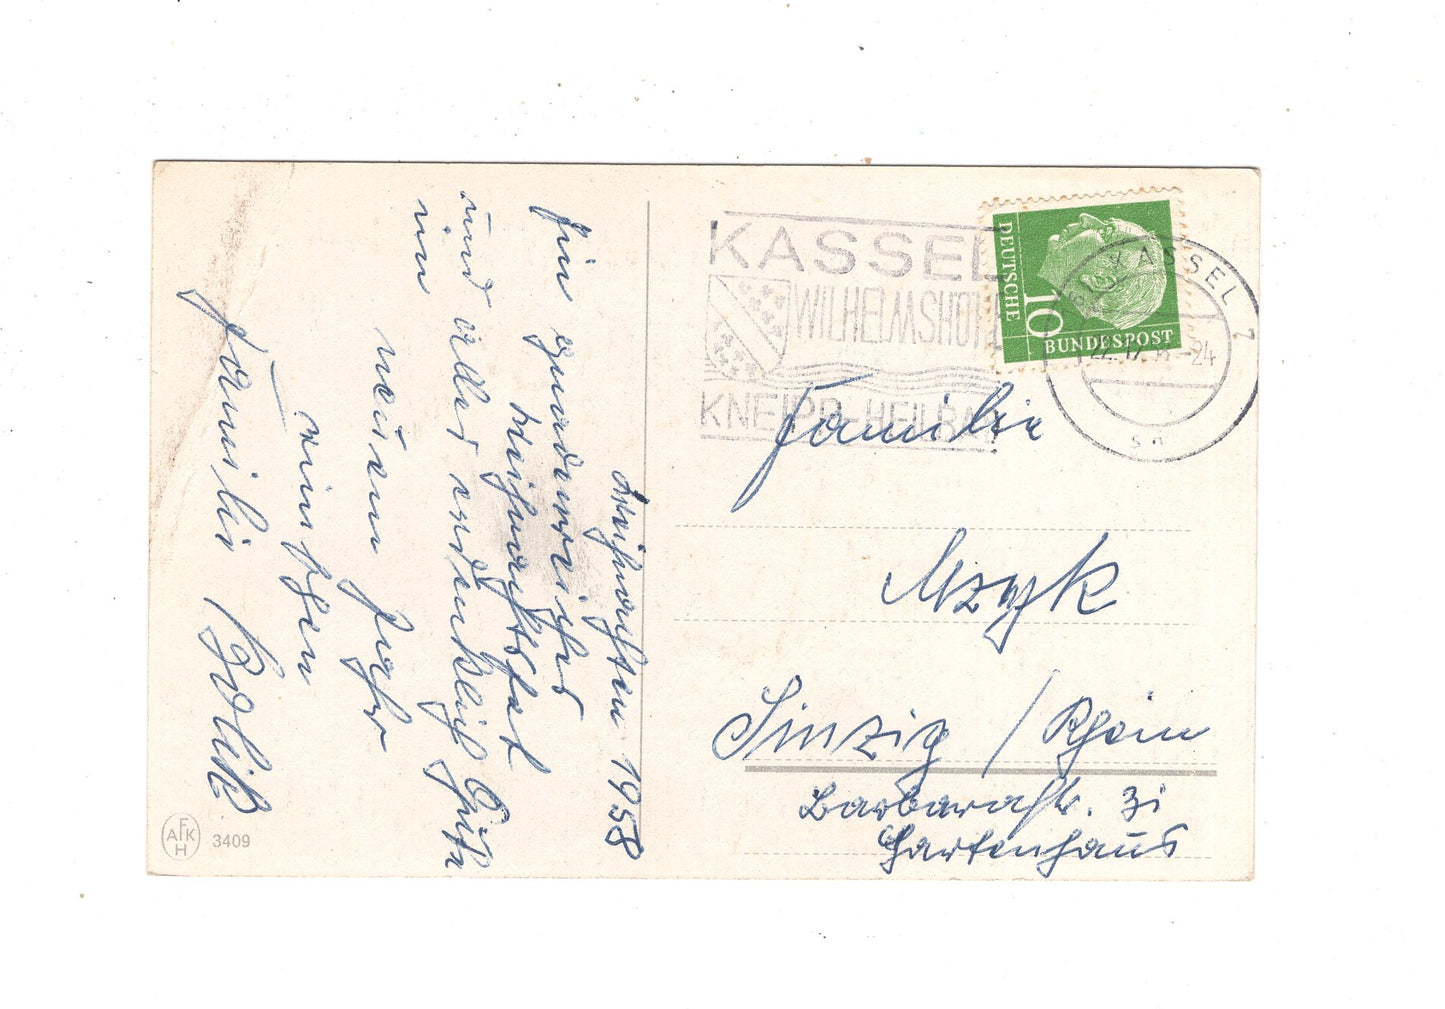 Weihnachten 1958
Ein gnadenreiches
Weihnachtsfest
und alles erdenklich Gute
im
neuen Jahr
wünschen
Familie
KASSEL
WILHELMSHÖHE
KNEIPP-HEILBAD
DEUTSCHE
10
BUNDESPOST
KASSEL 7
-24
Familie
Mzyk
Sinzig / Rhein
Barbarastr. 31
Gartenhaus
AFKH
3409